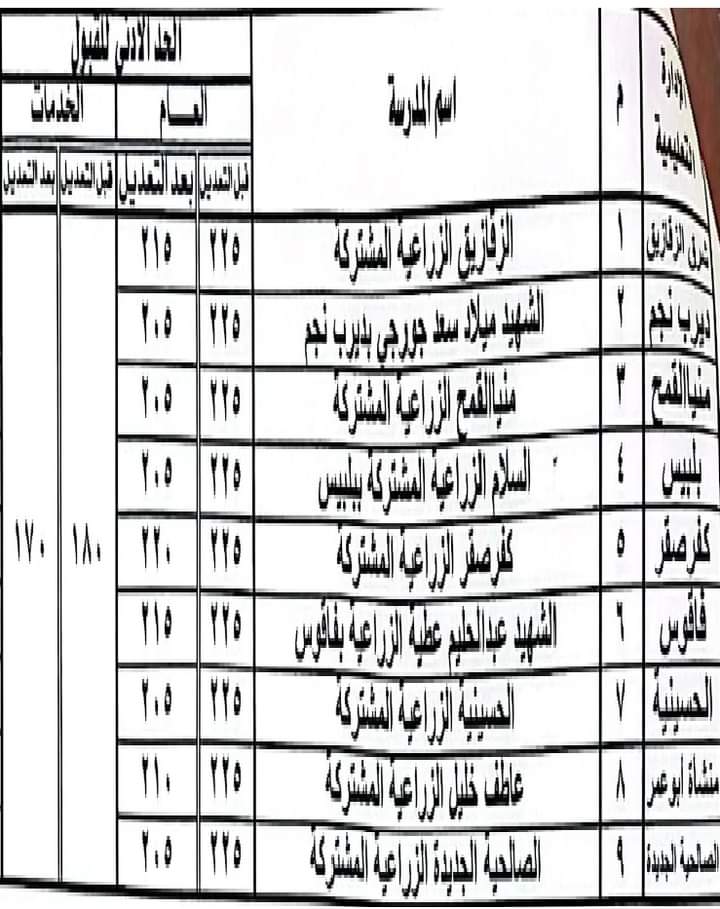 الإدارة التعليمية م اسم المدرسة الحد الادنى للقبول
العـــام الخدمات
قبل التعديل بعد التعديل قبل التعديل بعد التعديل
شرق الزقازيق ١ الزقازيق الزراعية المشتركة ٢٢٥ ٢١٥
ديرب نجم ٢ الشهيد ميلاد سعد جورجي بديرب نجم ٢٢٥ ٢٠٥
منياالقمح ٣ منياالقمح الزراعية المشتركة ٢٢٥ ٢٠٥
بلبيس ٤ السلام الزراعية المشتركة ببلبيس ٢٢٥ ٢٠٥
كفرصقر ٥ كفرصقر الزراعية المشتركة ٢٢٥ ٢٢٠ ١٨٠ ١٧٠
فاقوس ٦ الشهيد عبدالحليم عطية الزراعية بفاقوس ٢٢٥ ٢١٥
الحسينية ٧ الحسينية الزراعية المشتركة ٢٢٥ ٢٠٥
منشأة أبو عمر ٨ عاطف خليل الزراعية المشتركة ٢٢٥ ٢١٠
الصالحية الجديدة ٩ الصالحية الجديدة الزراعية المشتركة ٢٢٥ ٢٠٥